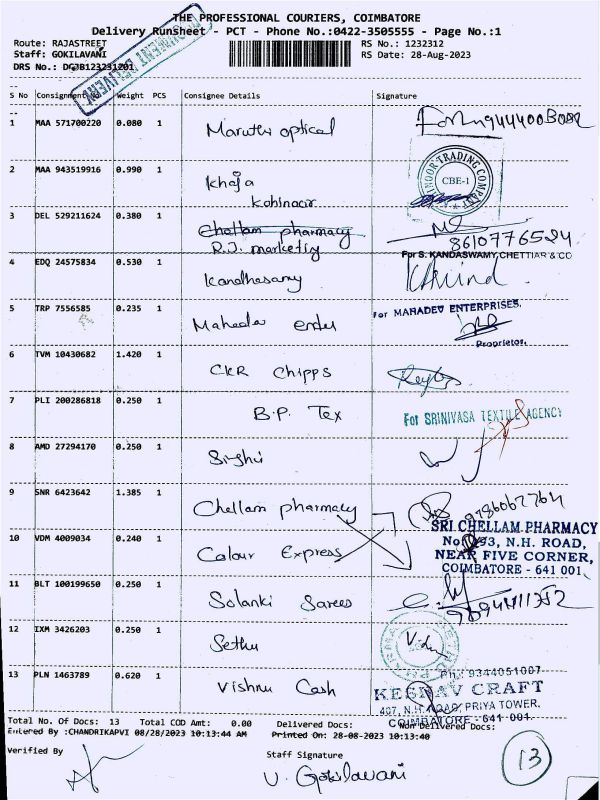 THE PROFESSIONAL COURIERS, COIMBATORE
Delivery Runsheet - PCT - Phone No.:0422-3505555 - Page No.:1
Route: RAJASTREET RS No.: 1232312
Staff: GOKILAVANI RS Date: 28-Aug-2023
DRS No.:
S No Consignment No Weight PCS Consignee Details Signature
1 MAA 571700220 0.080 1 Maruthi optical
2 MAA 943519916 0.990 1 Khaja
kohinoor
TRADING COMPANY
CBE-1
3 DEL 529211624 0.380 1 Chellam pharmacy
R.J. marketing 8610776524
For S. KANDASWAMY CHETTIAR & CO
4 EDQ 24575834 0.530 1 Kandhasamy
5 TRP 7556585 0.235 1 Mahadev enter For MAHADEV ENTERPRISES.
Proprietor.
6 TVM 10430682 1.420 1 CKR Chipps
7 PLI 200286818 0.250 1 B.P. Tex For SRINIVASA TEXTILE AGENCY
8 AMD 27294170 0.250 1
9 SNR 6423642 1.385 1 Chellam pharmacy
SRI CHELLAM PHARMACY
10 VDM 4009034 0.240 1 Colour Express
N.H. ROAD,
NEAR FIVE CORNER,
COIMBATORE - 641 001
11 BLT 100199650 0.250 1 Solanki Sarees
12 IXM 3426203 0.250 1 Sethu
13 PLN 1463789 0.620 1 Vishnu Cash
Ph: 9344051007
KESHAV CRAFT
407, N.H. ROAD, PRIYA TOWER,
COIMBATORE - 641 001.
Total No. Of Docs: 13 Total COD Amt: 0.00 Delivered Docs: Non Delivered Docs:
Entered By :CHANDRIKAPVI 08/28/2023 10:13:44 AM Printed On: 28-08-2023 10:13:40
Verified By Staff Signature
V. Gokilavani
13